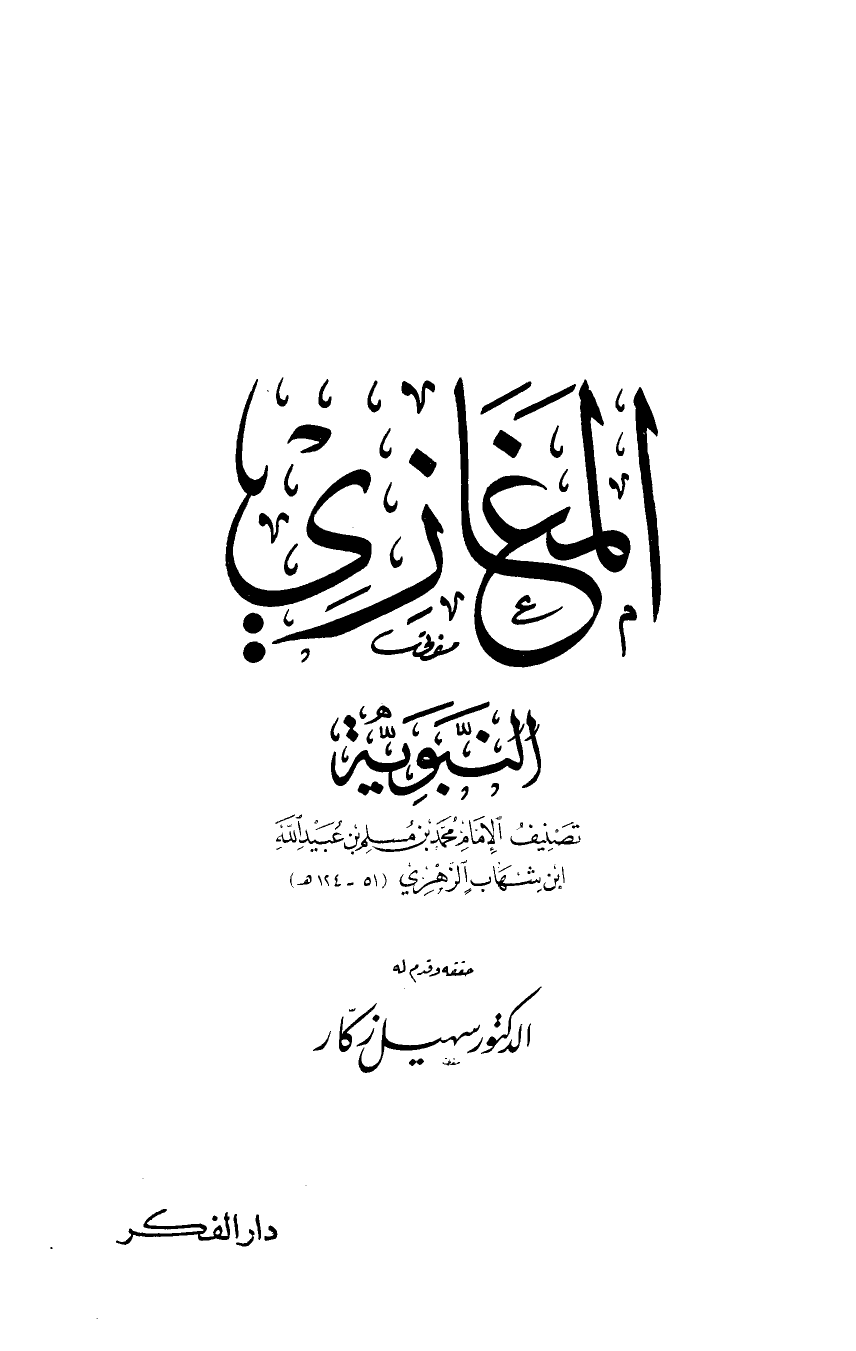 المَغَازِي
النَّبَوِيَّة
تصنيف الإمام محمد بن مسلم بن عبيد الله
ابن شهاب الزهري (٥١ - ١٢٤ هـ)
حققه وقدم له
الدكتور سهيل زكار
دار الفكر